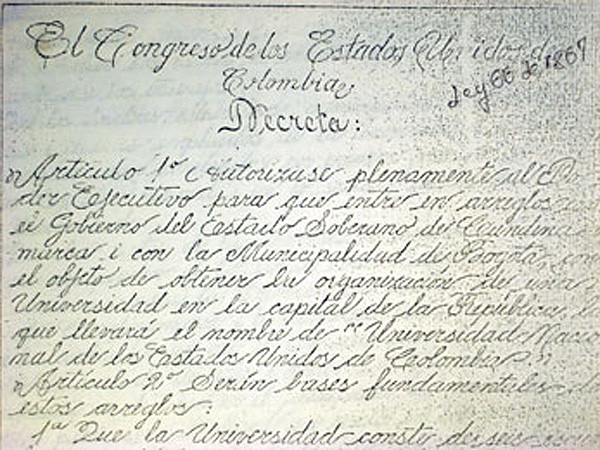 El Congreso de los Estados Unidos de
Colombia
Ley 66 de 1867
Decreta:
"Artículo 1º Autorízase plenamente al Po
der Ejecutivo para que entre en arreglos
el Gobierno del Estado Soberano de Cundina
marca i con la Municipalidad de Bogotá, con
el objeto de obtener la organización de una
Universidad en la capital de la República,
que llevará el nombre de "Universidad Nacio
nal de los Estados Unidos de Colombia."
"Artículo 2º Serán bases fundamentales de
estos arreglos:
1ª Que la Universidad conste de seis